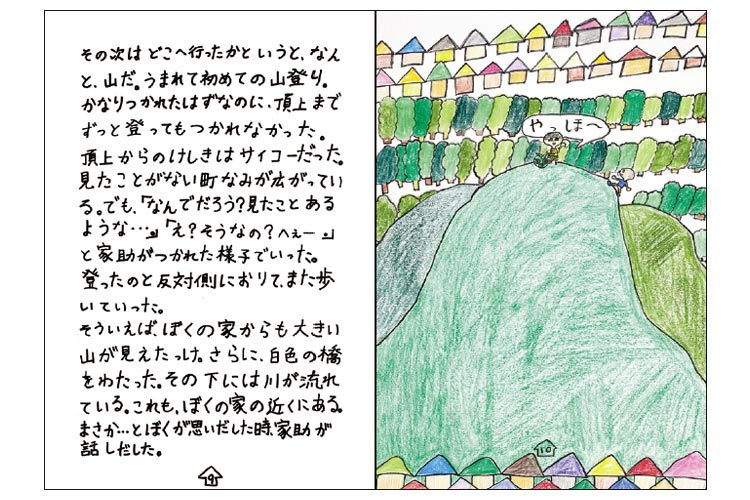 その次はどこへ行ったかというと、なん
と、山だ。うまれて初めての山登り。
かなりつかれたはずなのに、頂上まで
ずっと登ってもつかれなかった。
頂上からのけしきはサイコーだった。
見たことがない町なみが広がってい
る。でも、「なんでだろう?見たことある
ような…。」「え?そうなの?へぇー。」
と家助がつかれた様子でいった。
登ったのと反対側におりて、また歩
いていった。
そういえば、ぼくの家からも大きい
山が見えたっけ。さらに、白色の橋
をわたった。その下には川が流れ
ている。これも、ぼくの家の近くにある。
まさか…とぼくが思いだした時、家助が
話しだした。
9
やっほ〜
10